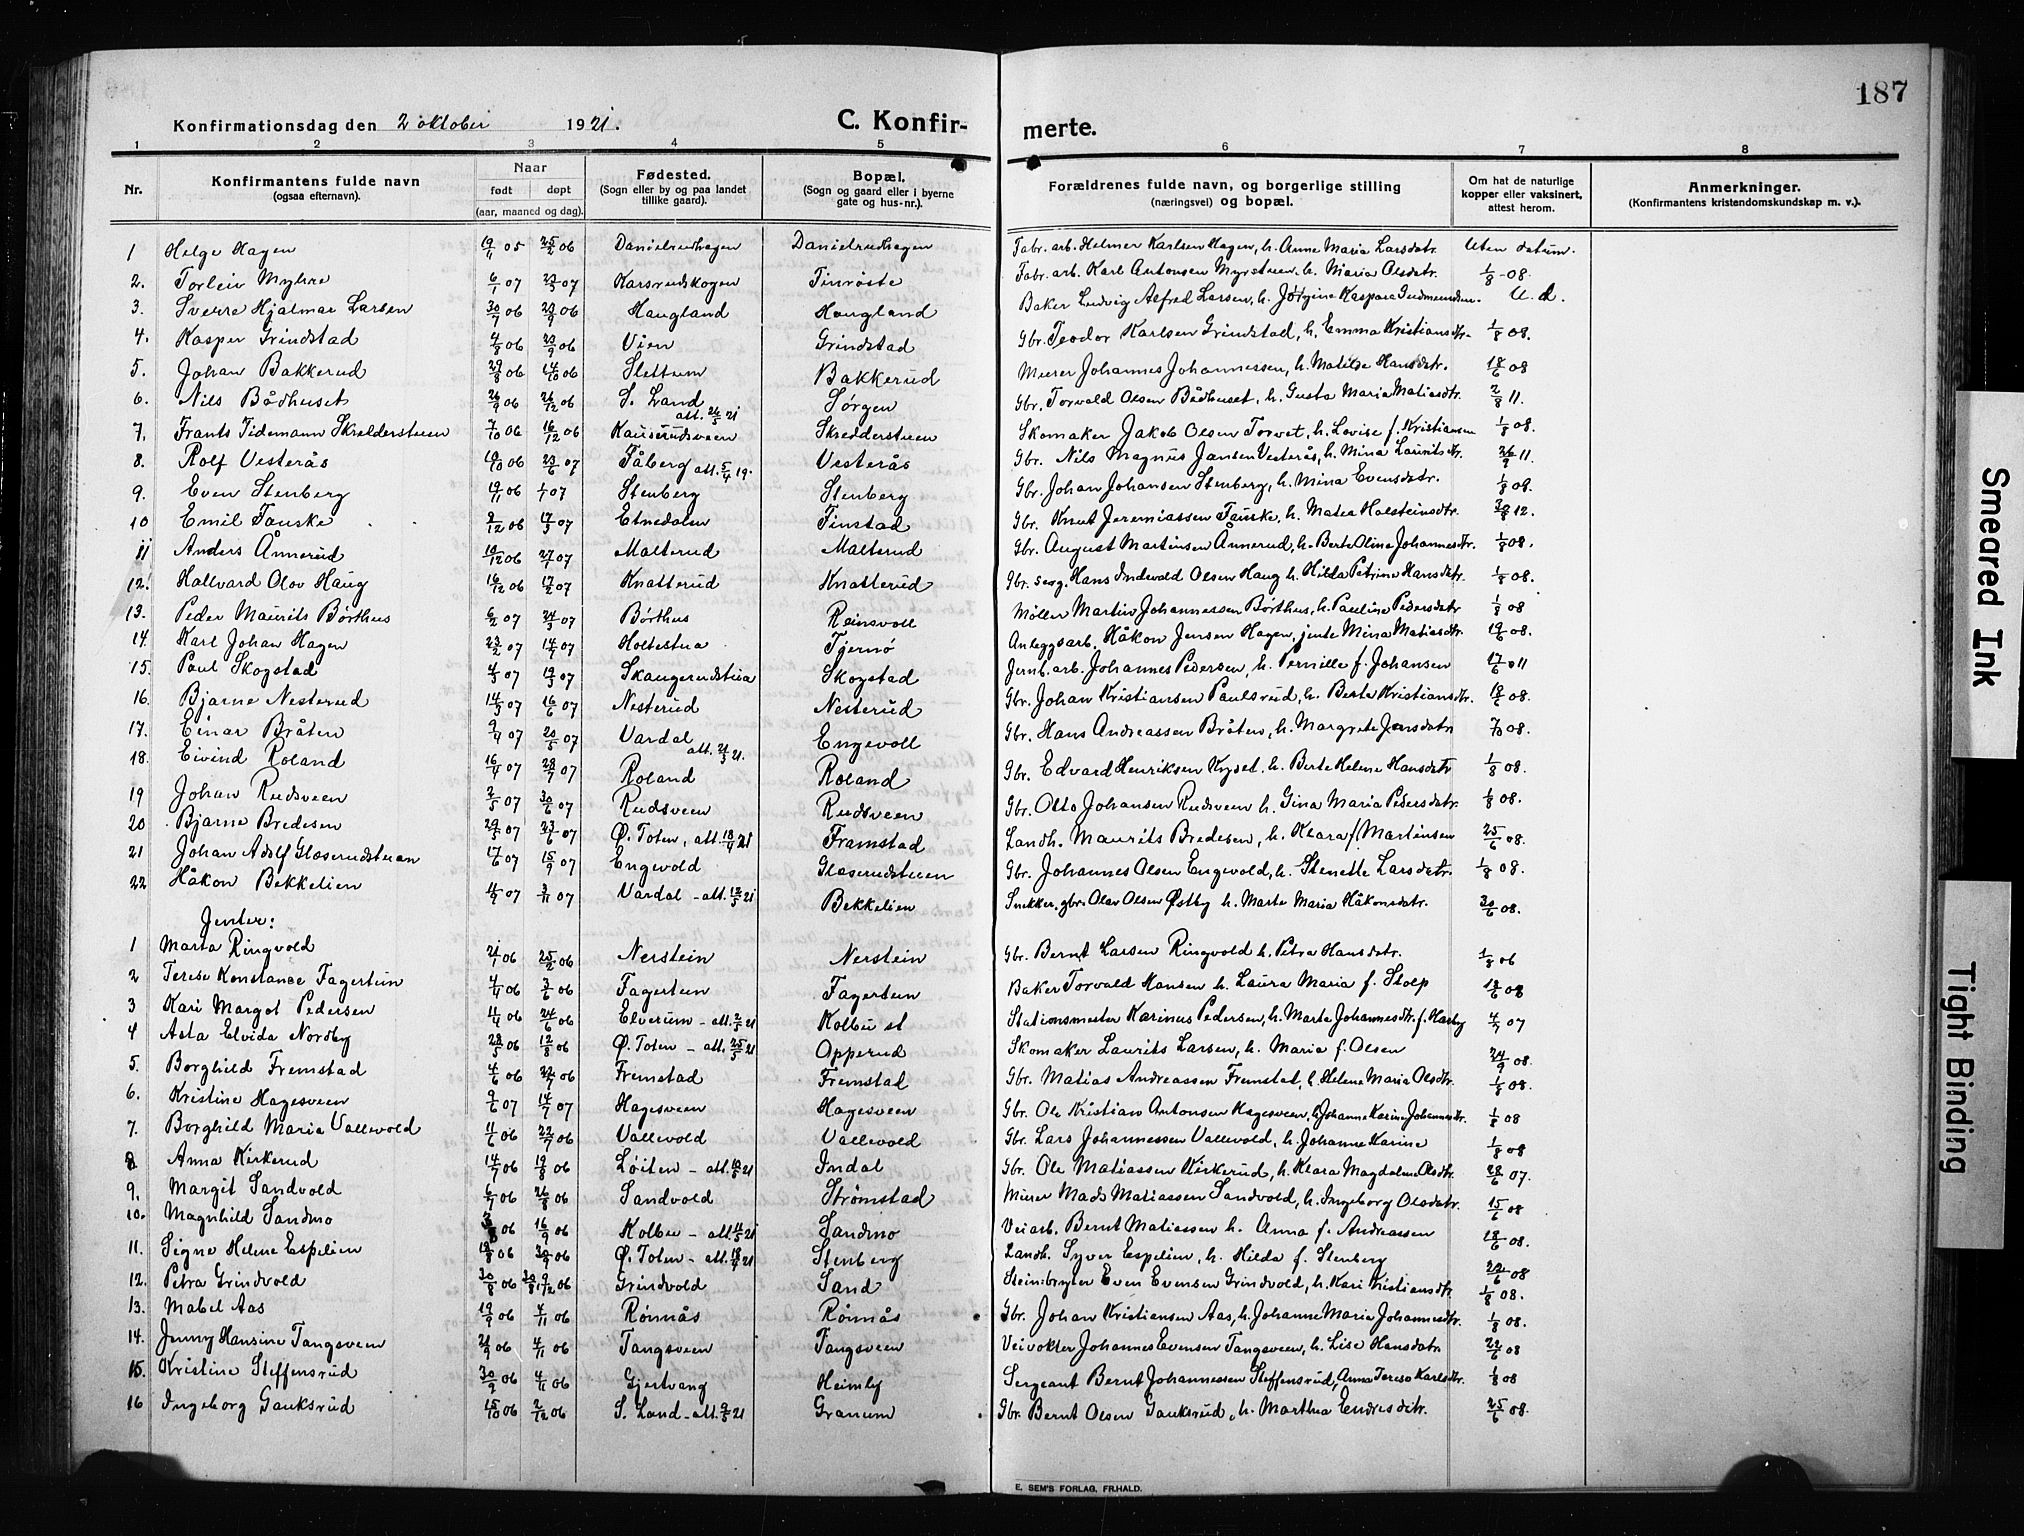 187
Konfirmationsdag den 2 oktober 1921.
C. Konfir-
merte.
1 2 3 4 5 6 7 8
Nr.
Konfirmantens fulde navn
(ogsaa efternavn).
Naar
født døpt
(aar, maaned og dag).
Fødested.
(Sogn eller by og paa landet
tillike gaard).
Bopæl.
(Sogn og gaard eller i byerne
gate og hus-nr.).
Forældrenes fulde navn, og borgerlige stilling
(næringsvei) og bopæl.
Om hat de naturlige
kopper eller vaksinert,
attest herom.
Anmerkninger.
(Konfirmantens kristendomskundskap m. v.).
1 Helge Hagen 19/11 05 25/2 06 Danielrudhagen Danielrudhagen Fabr. arb. Helmer Karlsen Hagen, h. Anne Maria Larsdatr. Uten datum.
2. Torleiv Myhre 6/1 07 07 Karsrudskogen Finröste Fabr. arb. Karl Antonsen Myrstuen h. Maria Olsdatr. 1/8-08.
3. Sverre Hjalmar Larsen 30/7 06 06 Haugland Haugland Baker Ludvig Alfred Larsen, h. Kaspara U. d.
4. Kasper Grindstad 4/8 06 06 Vien Grindstad Gbr. Teodor Karlsen Grindstad, h. Emma Kristiansdtr. 1/8 08.
5. Johan Bakkerud 29/8 06 14/10 06 Slettum Bakkerud Murer Johannes Johannessen, h. Matilde Hansdatr. 18/6 08
6. Nils Bådhuset 26/9 06 26/12 06 S. Land att. 21 Sørgen Gbr. Torvald Olsen Bådhuset, h. Gusta Maria Matiasdtr. 2/8 11.
7. Frants Tidemann Skredderstuen 7/10 06 16/12 06 Kauserudsveen Skredderstuen Skomaker Jakob Olsen Torvet, h. Lovise f. Kristiansen 1/8 08.
8. Rolf Vesterås 19/10 06 23/6 07 Fåberg att. 5/4 19. Vesterås Gbr. Nils Magnus Jansen Vesterås, h. Mina Lauritsdtr. 26/9 11.
9. Even Stenberg 19/11 06 1/1 07 Stenberg Stenberg Gbr. Johan Johansen Stenberg, h. Mina Evensdatr. 1/8 08.
10 Emil Fauske 9/12 06 17/3 07 Etnedalen Finstad Gbr. Knut Jeremiassen Fauske, h. Matea Halsteinsdtr. 12.
11 Anders Ånnerud 19/12 06 27/1 07 Malterud Malterud Gbr. August Martinsen Ånnerud, h. Berte Oline Johannesdtr. 1/8 08.
12. Hallvard Olov Haug 16/12 06 17/2 07 Knatterud Knatterud Gbr. Hans Indevald Olsen Haug h. Hilda Petrine Hansdtr. 1/8 08.
13. Peder Maurits Börthus 6/2 07 24/3 07 Börthus Reinsvoll Møller Martin Johannessen Börthus, h. Pauline Pedersdatr 1/8 08
14. Karl Johan Hagen 23/2 07 14/7 07 Holtestua Tjernø Anleggsarb. Håkon Jensen Hagen, jente Mina Matiasdtr. 19/6 08.
15. Paul Skogstad 4/3 07 19/3 07 Skaugerudstua Skogstad Jernb. arb. Johannes Pedersen, h. Pernille f. Johansen 17/6 011
16. Bjarne Nesterud 14/3 07 16/6 07 Nesterud Nesterud Gbr. Johan Kristiansen Paulsrud, h. Berte Kristiansdtr. 08.
17. Einar Bråten 07 20/5 07 Vardal att. 21. Engevoll Gbr. Hans Andreassen Bråten, h. Margrete Jensdatr 7/10 08.
18. Eivind Roland 16/4 07 28/7 07 Roland Roland Gbr. Edvard Henriksen Kyset. h. Berte Helene Hansdatr 1/8 08.
19 Johan Rudsveen 2/5 07 30/6 07 Rudsveen Rudsveen Gbr. Otto Johansen Rudsveen h. Gina Maria Pedersdatr. 1/8 08.
20 Bjarne Bredesen 29/5 07 23/6 07 Ø. Toten, att. 18/4 21 Framstad Landh. Maurits Bredesen, h. Klara f. Martinsen 25/6 08.
21 Johan Adolf Glæserudstuen 17/6 07 15/9 07 Engevold Glæserudstuen Gbr. Johannes Olsen Engevold, h. Stenette Larsdatr. 1/8 08.
22 Håkon Bekkelien 4/9 07 3/11 07 Vardal - att. 12/5 21 Bekkelien Snekker. gbr. Olav Olsen Østby h. Marte Maria Håkonsdatr. 30/6 08.
Jenter:
1 Marta Ringvold 21/1 06 25/2 06 Nerstein Nerstein Gbr. Bernt Larsen Ringvold h. Petra Hansdatr. 1/8 06
2 Terese Konstance Fagertun 4/4 06 3/6 06 Fagertun Fagertun Baker Torvald Hansen h. Laura Maria f. Stolp 18/6 08
3 Kari Margot Pedersen 11/4 06 24/6 06 Elverum - att. 2/5 21 Kolbu st Stationsmester Karinus Pedersen, h. Marta Johannesdtr. f. 4/7 07
4 Asta Elvida Nordby 28/5 06 12/8 06 Ø. Toten - att. 25/5 21 Opperud Skomaker Laurits Larsen, h. Maria f. Olsen 24/9 08.
5. Borghild Fremstad 4/6 06 22/7 06 Fremstad Fremstad Gbr. Matias Andreassen Fremstad, h. Helene Maria Olsdtr. 1/8 08.
6. Kristine Hagesveen 9/6 07 14/7 07 Hagesveen Hagesveen Gbr. Ole Kristian Antonsen Hagesveen, h. Johanne Karine Johannesdtr. 1/8 08
7. Borghild Maria Vallevold 11/6 06 22/7 06 Vallevold Vallevold Gbr. Lars Johannessen Vallevold, h. Johanne Karine 1/8 08
8. Anna Kirkerud 14/7 06 19/8 06 Løiten - att. 21 Indal Gbr. Ole Matiassen Kirkerud, h. Klara Magdalene Olsdtr. 28/6 07.
9. Margit Sandvold 6/7 06 26/8 06 Sandvold Strømstad Murer Mads Matiassen Sandvold, h. Ingeborg Olsdatr. 15/6 08
10. Magnhild Sandmo 06 16/9 06 Kolbu - att. 21 Sandmo Veiarb. Bernt Matiassen h. Anna f. Andreassen 18/6 08.
11. Signe Helene Espelien 19/8 06 30/9 06 Ø. Toten - att. 18/4 21 Stenberg Landh. Syver Espelien, h. Hilda f. Stenberg 22/6 08
12. Petra Grindvold 30/8 06 06 Grindvold Sand Steinbryter Even Evensen Grindvold, h. Kari Kristiansdtr. 1/8 08.
13. Mabel Aas 19/9 06 4/11 06 Rønnås Rønnås Gbr. Johan Kristiansen Aas, h. Johanne Maria Johannesdtr. 1/8 08.
14. Jenny Hansine Tangsveen 21/9 06 4/11 06 Tangsveen Tangsveen Veivokter Johannes Evensen Tangsveen, h. Lise Hansdatr 22/6 08
15. Kristine Steffensrud 30/9 06 4/11 06 Gjertvang Heimly Sergeant Bernt Johannessen Steffensrud, Anna Terese Karlsdtr. 1/8 08
16 Ingeborg Gauksrud 15/10 06 2/12 06 S. Land - att. 21 Granum Gbr. Bernt Olsen Gauksrud, h. Marthea Endresdtr. 25/6 08.
E. SEM'S FORLAG, FR.HALD.
Smeared Ink
Tight Binding